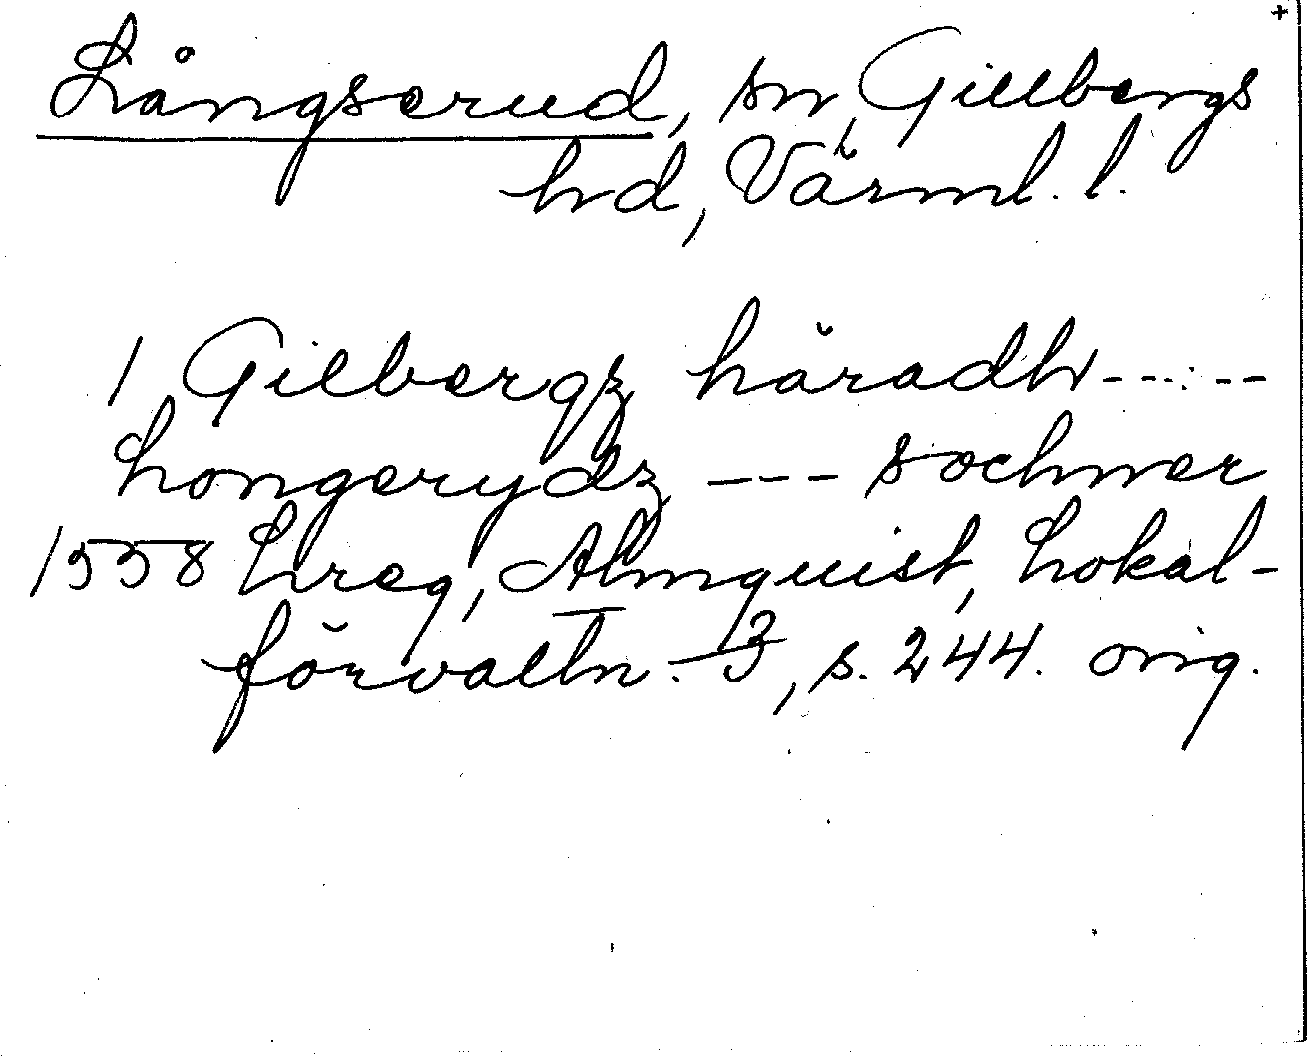 +
Långserud, sn, Gillbergs
hd, Värml. l.
1 Gilbergz häradh - - - - - -
Longerydz - - - sochner
1558 Lreg, Almquist, Lokal-
förvaltn. 3, s. 244. orig.